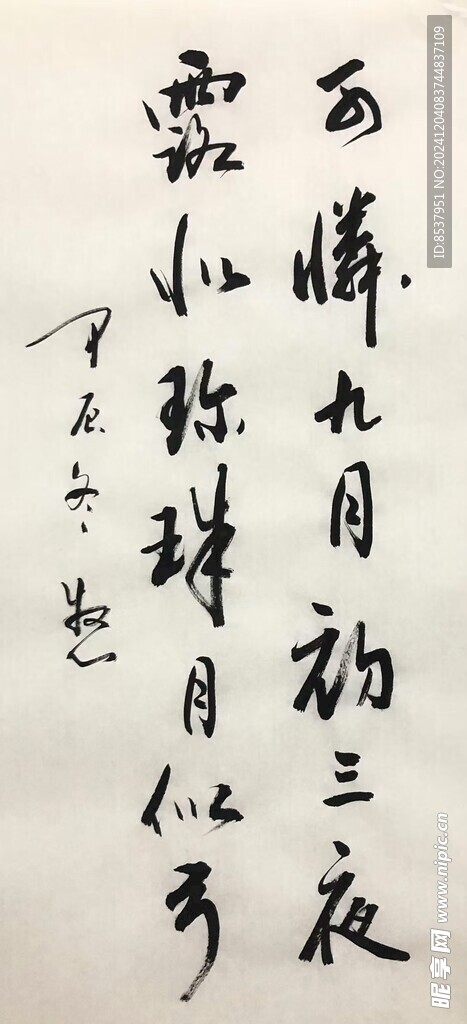 可憐九月初三夜
露似珍珠月似弓
甲辰冬
ID:8537951 NO:20241204083744837109
昵享网 www.nipic.cn